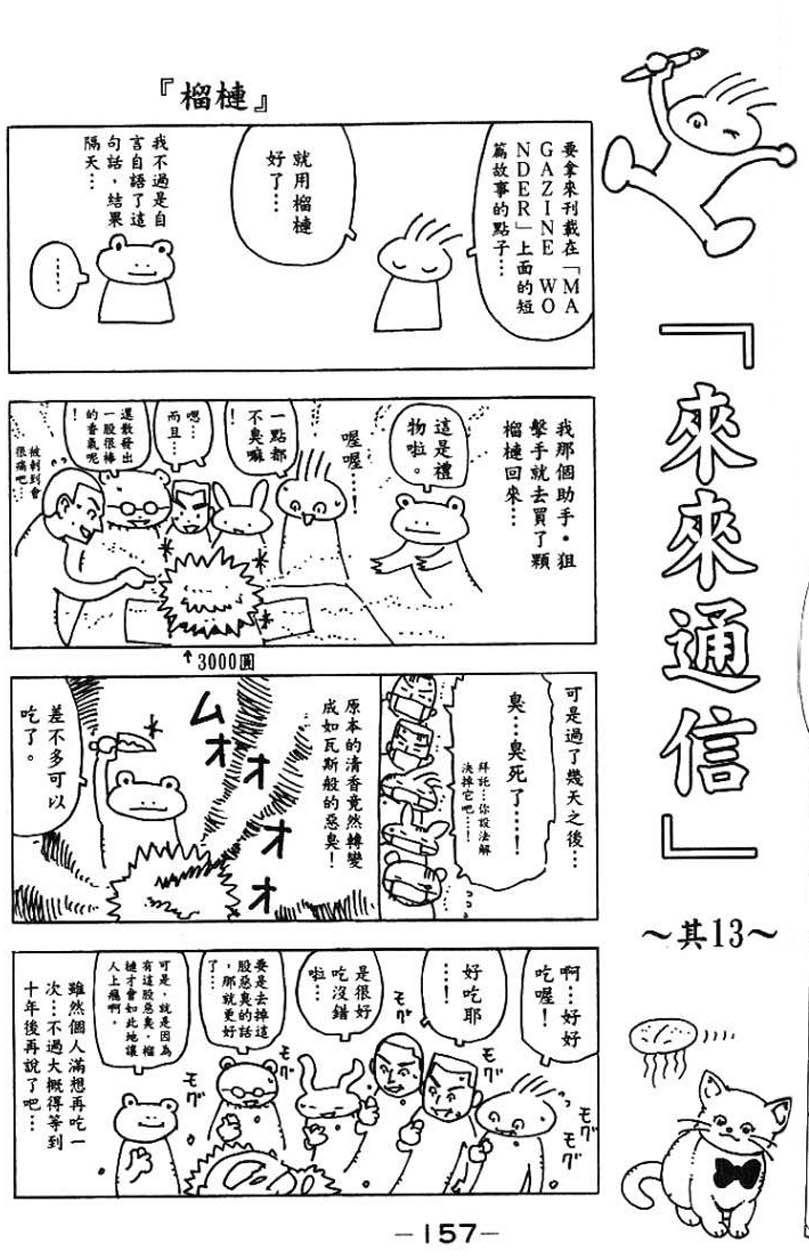 『來來通信』
～其13～
『榴槤』
要拿來刊載在「MA
GAZINE WO
NDER」上面的短
篇故事的點子…
就用榴槤
好了…
我不過是自
言自語了這
句話，結果
隔天…
……
我那個助手・狙
擊手就去買了顆
榴槤回來…
這是禮
物啦。
喔喔…！
一點都
不臭嘛
！
嗯…
而且…
還散發出
一股很棒
的香氣呢
！
被刺到會
很痛吧…
↑3000圓
可是過了幾天之後…
臭…臭死了……！
拜託…你設法解
決掉它吧…！
原本的清香竟然轉變
成如瓦斯般的惡臭！
ムオ
オ
オ
オ
差不多可以
吃了。
啊…好好
吃喔！
好吃耶
…！
是很好
吃沒錯
啦…
要是去掉這
股惡臭的話
，那就更好
了…
可是，就是因為
有這股惡臭，榴
槤才會如此地讓
人上癮啊。
モグ
モグ
モグ
モグ
モグ
雖然個人滿想再吃一
次…不過大概得等到
十年後再說了吧…
—157—